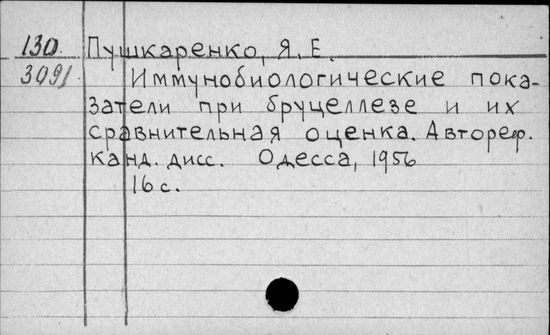 130 Пушкаренко, Я. Е.
3091 Иммунобиологические пока-
затели при бруцеллезе и их
сравнительная оценка. Автореф.
канд. дисс. Одесса, 1956
16 с.